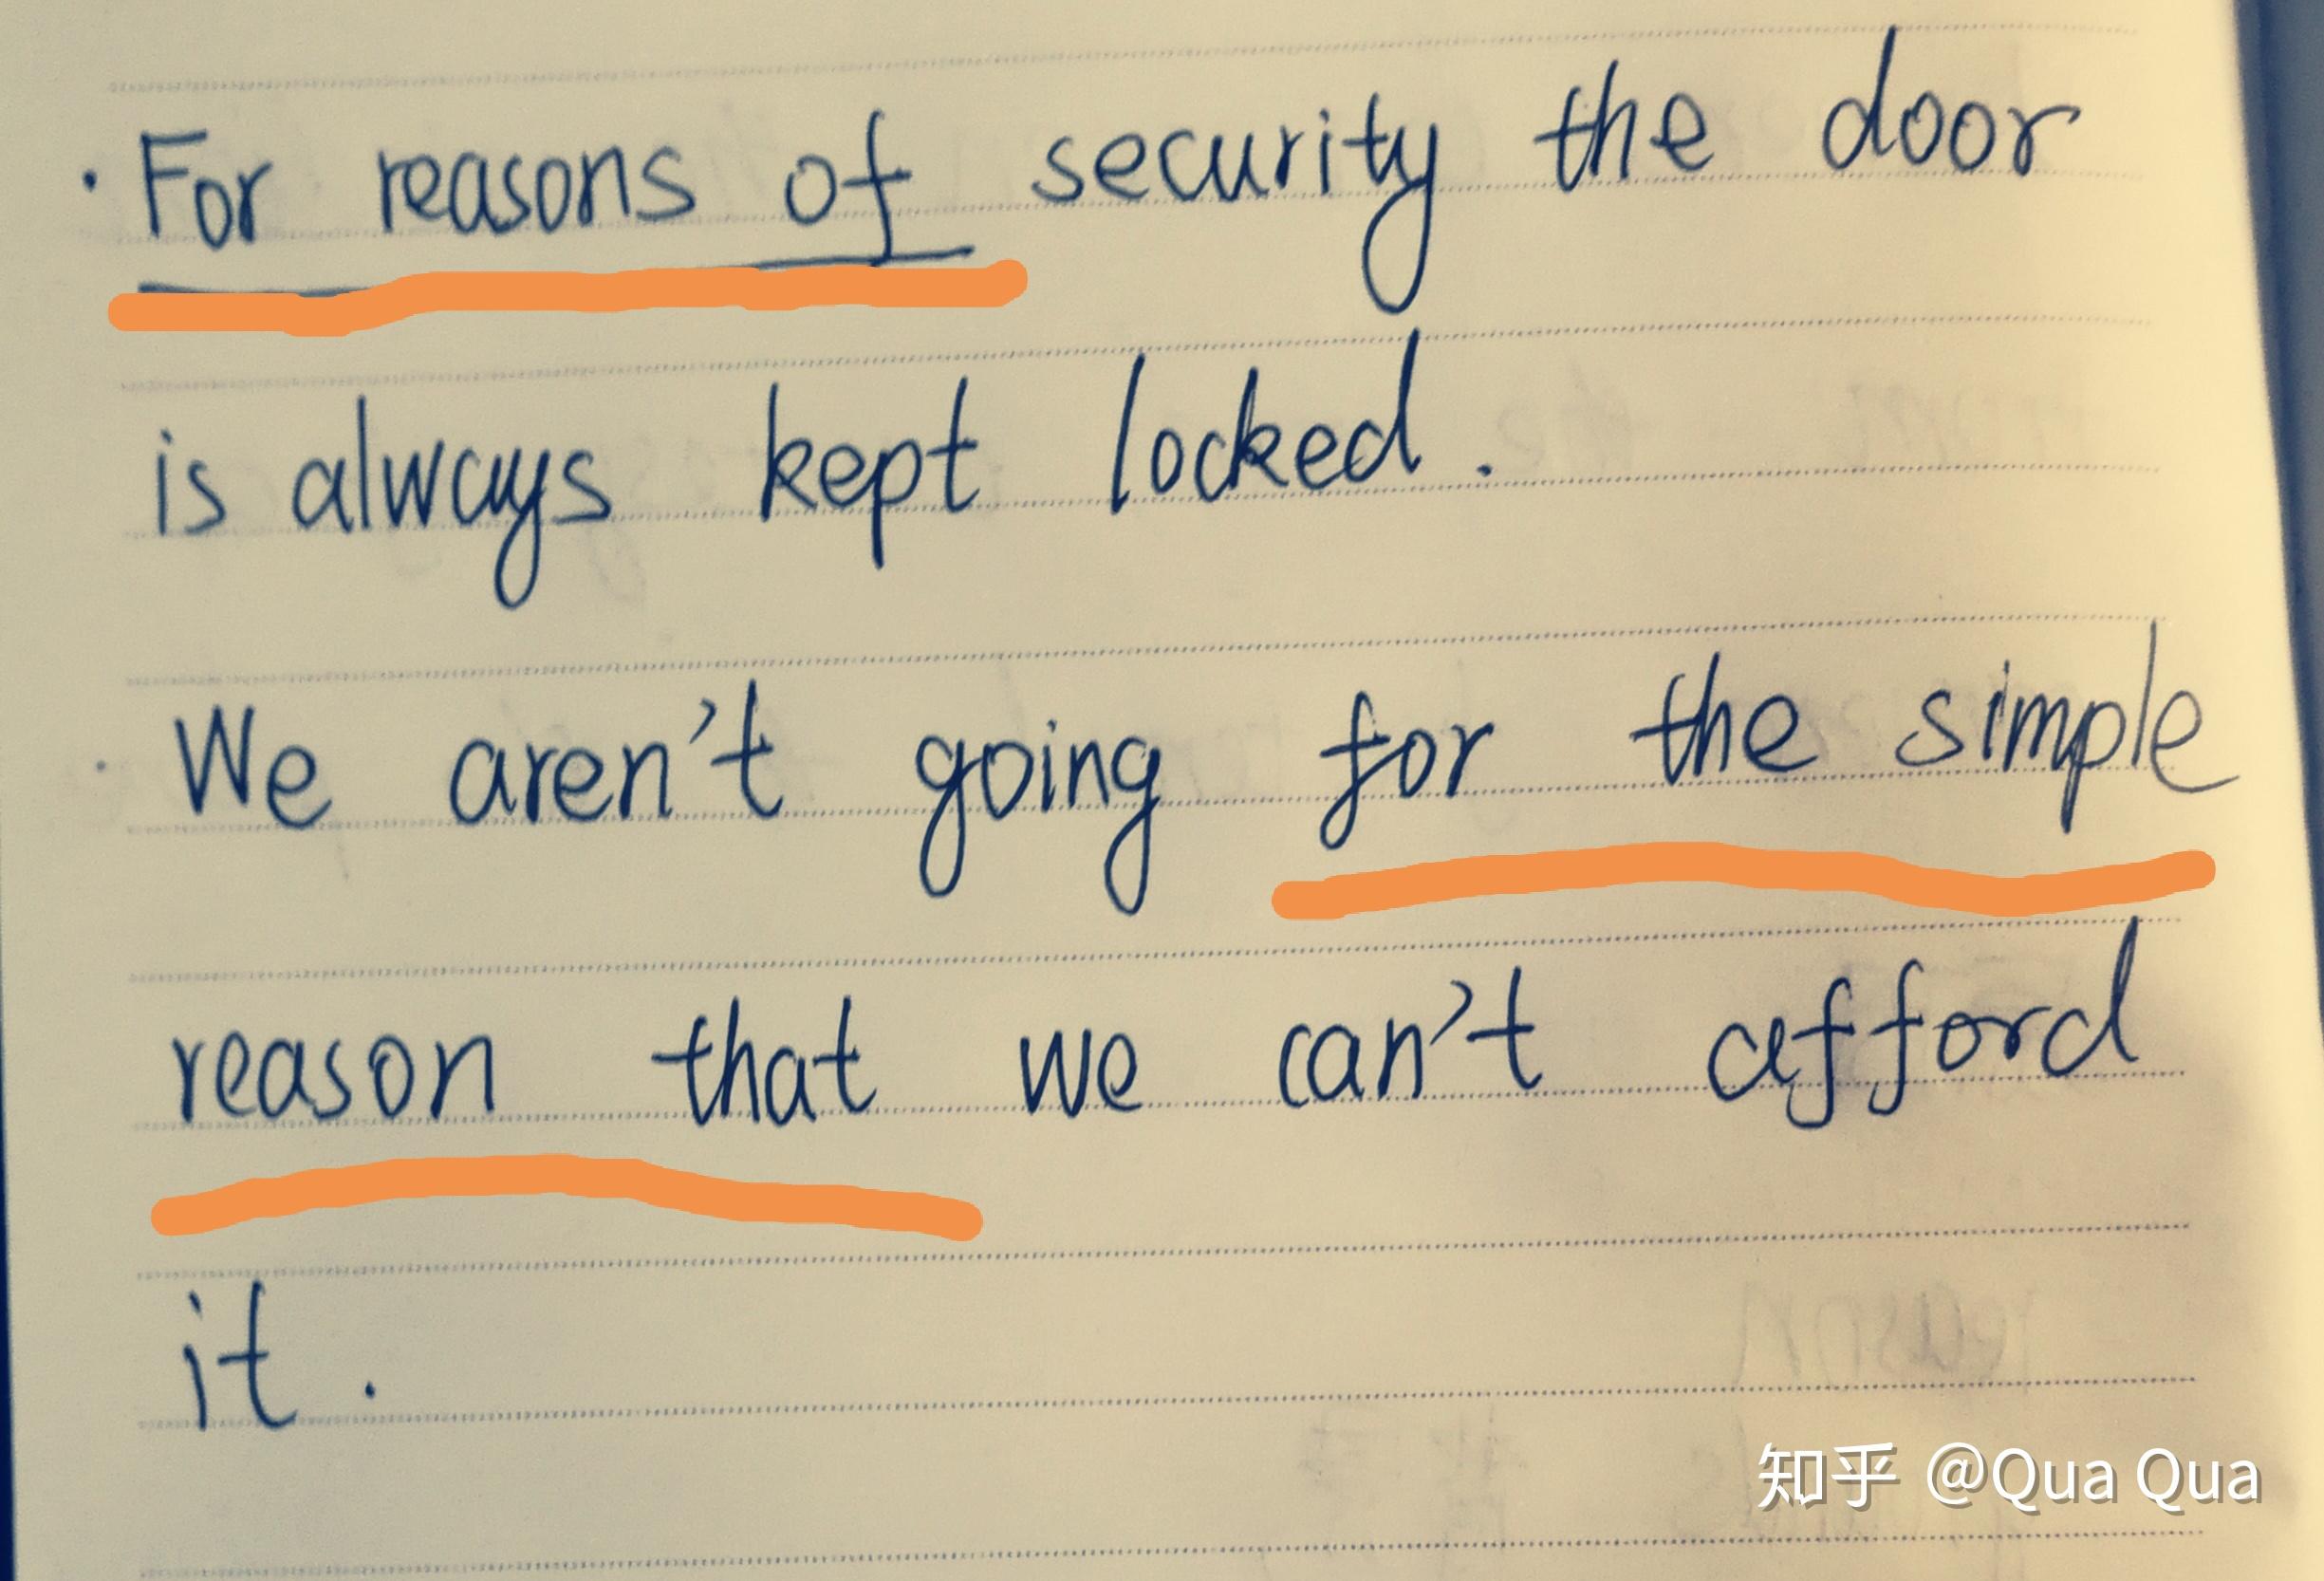 · For reasons of security the door
is always kept locked.
· We aren't going for the simple
reason that we can't afford
it.
知乎 @Qua Qua